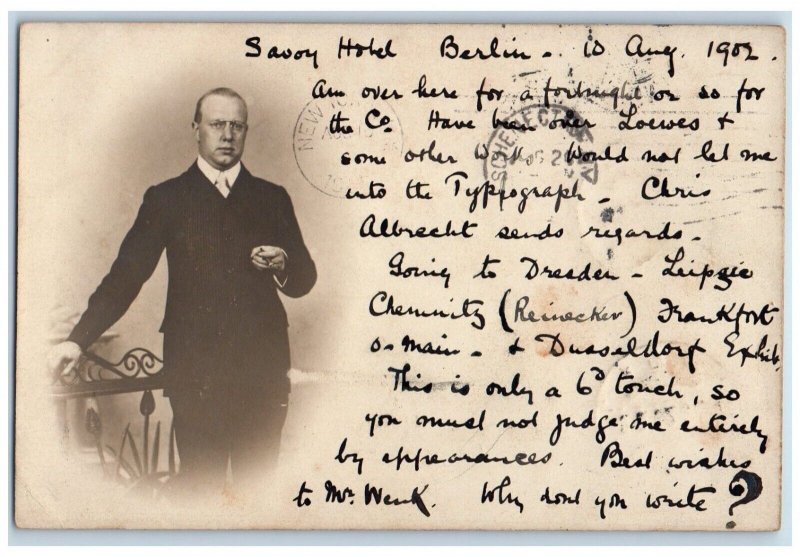 Savoy Hotel Berlin - 10 Aug. 1902.
Am over here for a fortnight or so for
the Co. Have been over Loewes &
some other Wks. Would not let me
into the Typograph - Chris
Albrecht sends regards -
Going to Dresden - Leipzic
Chemnitz (Reinecker) Frankfort
o-main - & Dusseldorf Exhib.
This is only a 6D touch, so
you must not judge me entirely
by appearances. Best wishes
to Mr. Wenk. Why dont you write?
NEW YORK
SCHENECTADY